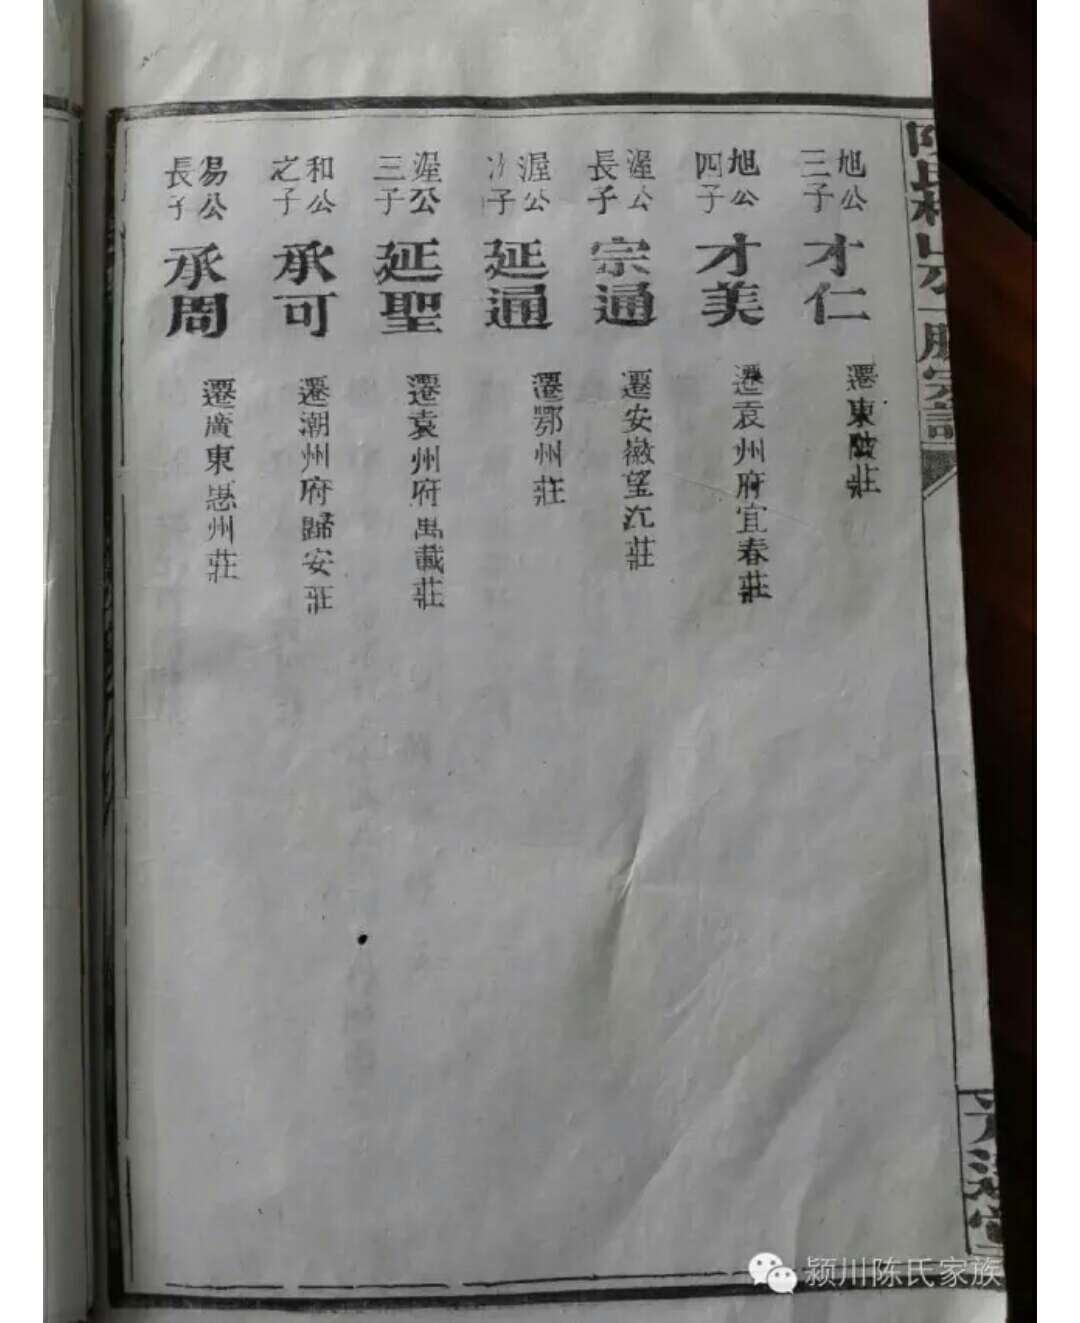 旭公
三子
才仁
遷東陂莊
旭公
四子
才美
遷袁州府宜春莊
渥公
長子
宗通
遷安徽望江莊
渥公
子
延通
遷鄂州莊
渥公
三子
延聖
遷袁州府萬載莊
和公
之子
承可
遷潮州府歸安莊
易公
長子
承周
遷廣東惠州莊
颍川陈氏家族